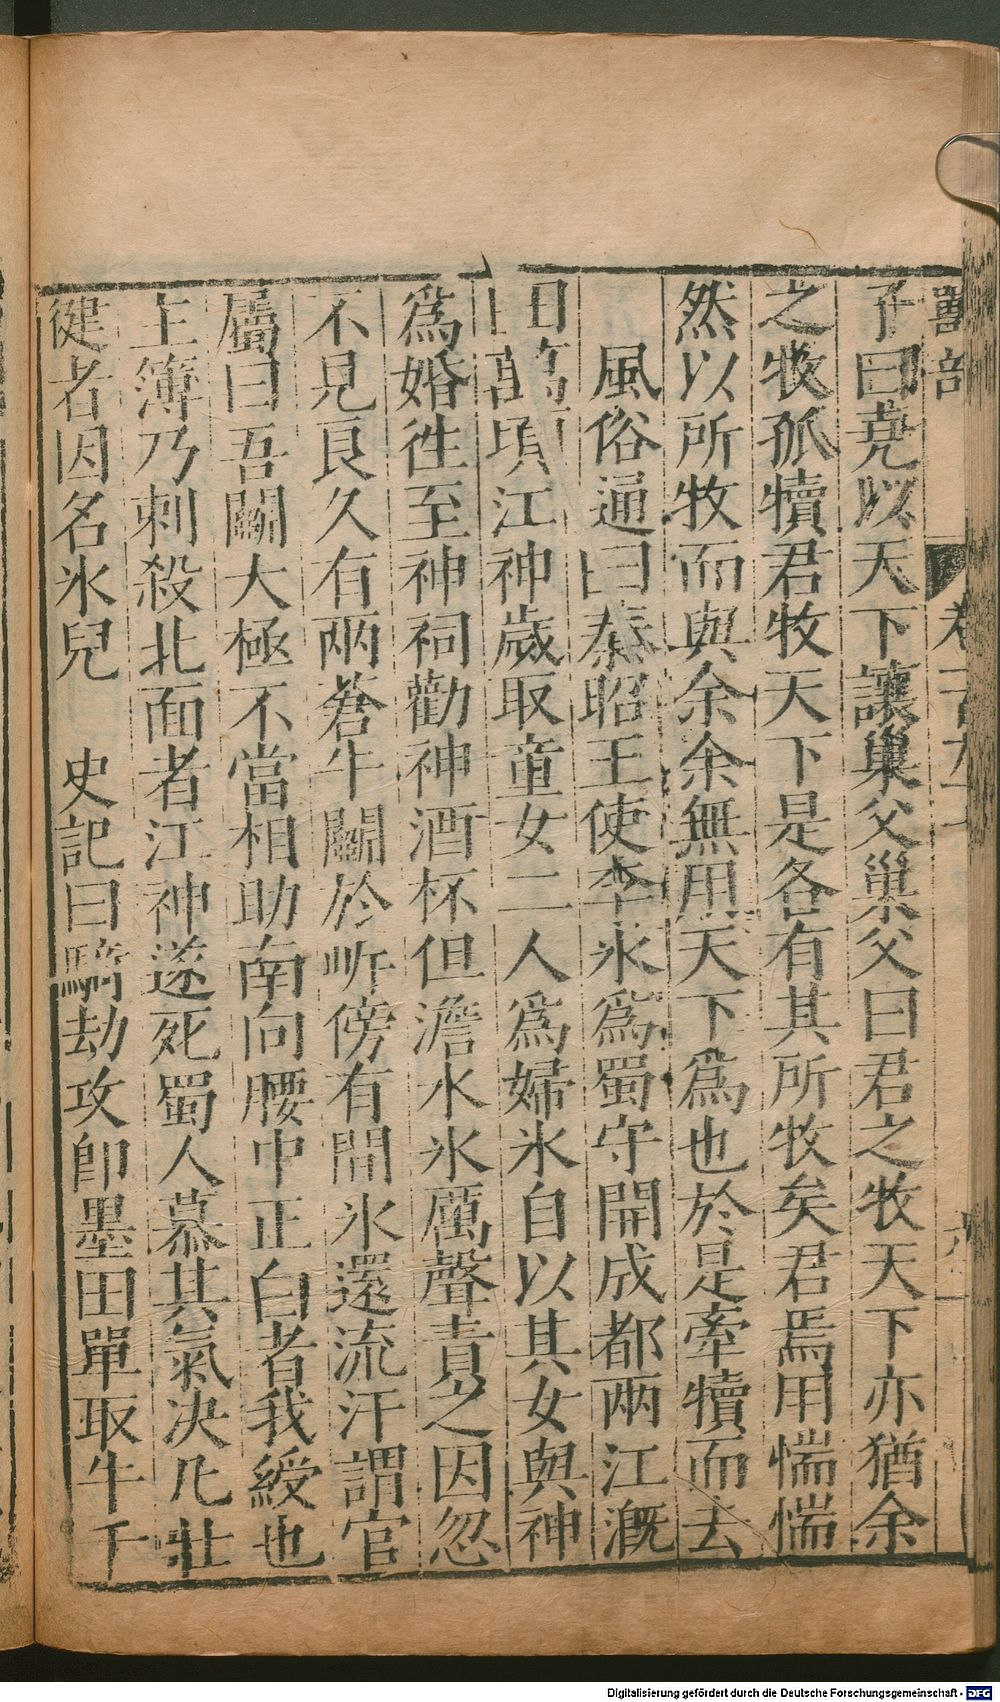 獸部
子曰堯以天下讓巢父巢父曰君之牧天下亦猶余
之牧孤犢君牧天下是各有其所牧矣君焉用惴惴
然以所牧而與余余無用天下爲也於是牽犢而去
風俗通曰秦昭王使李氷爲蜀守開成都兩江溉
田萬頃江神歲取童女二人爲婦氷自以其女與神
爲婚徃至神祠勸神酒杯但澹水氷厲聲責之因忽
不見良久有兩蒼牛鬭於㟁傍有間氷還流汗謂官
屬曰吾鬭大極不當相助南向腰中正白者我綬也
主簿乃刺殺北面者江神遂死蜀人慕其氣决凢壯
健者因名氷兒 史記曰騎劫攻卽墨田單取牛千
Digitalisierung gefördert durch die Deutsche Forschungsgemeinschaft - DFG